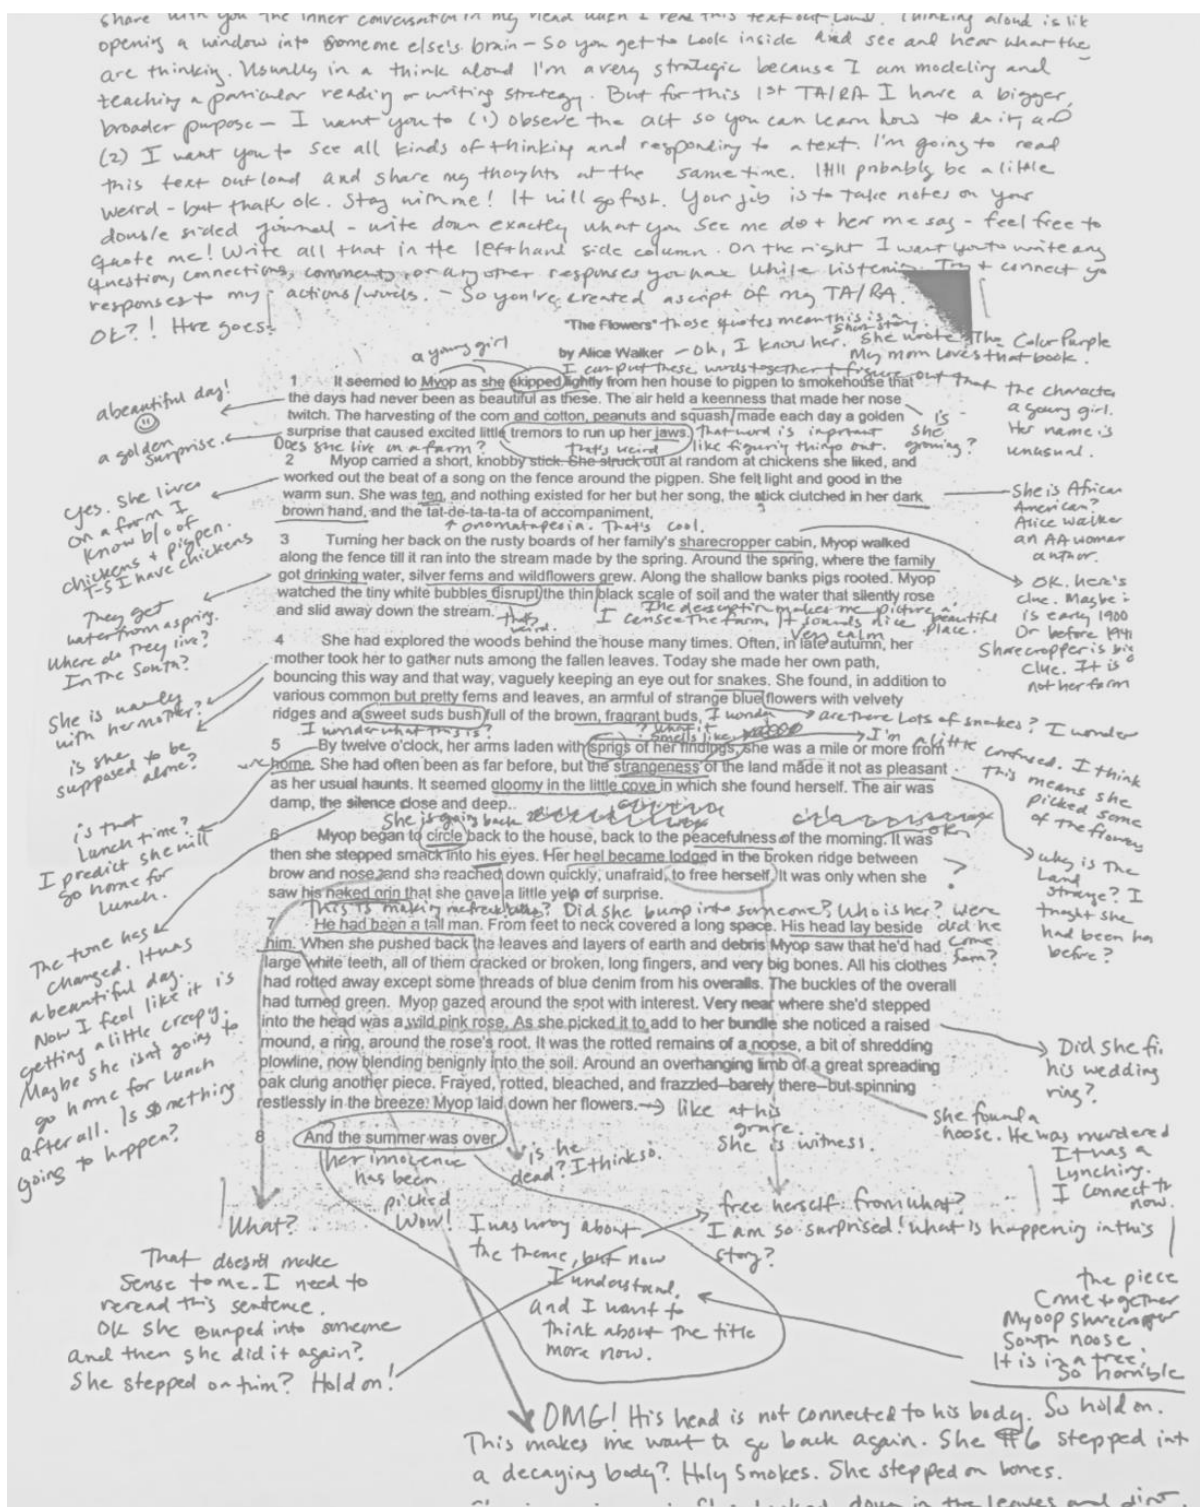 share with you the inner conversation in my head when I read this text out loud. Thinking aloud is lik
opening a window into someone else's brain - So you get to look inside and see and hear what the
are thinking. Usually in a think aloud I'm a very strategic because I am modeling and
teaching a particular reading or writing strategy. But for this 1st TA/RA I have a bigger,
broader purpose - I want you to (1) observe the act so you can learn how to do it, and
(2) I want you to see all kinds of thinking and responding to a text. I'm going to read
this text out load and share my thoughts at the same time. It'll probably be a little
weird - but that's ok. Stay with me! It will go fast. Your job is to take notes on your
double sided journal - write down exactly what you see me do + hear me say - feel free to
quote me! Write all that in the lefthand side column. On the right I want you to write any
question, connections, comments, or any other responses you have while listening. Try + connect yo
responses to my actions/words. - So you've created a script of my TA/RA.
OK?! Here goes:
"The Flowers" those quotes mean this is a
short story.
by Alice Walker - Oh, I know her. She wrote The Color Purple
My mom loves that book.
a young girl
I can put these words together + figure out that the character
a young girl.
Her name is
unusual.
1 It seemed to Myop as she skipped lightly from hen house to pigpen to smokehouse that
the days had never been as beautiful as these. The air held a keenness that made her nose
twitch. The harvesting of the corn and cotton, peanuts and squash, made each day a golden
surprise that caused excited little tremors to run up her jaws.
a beautiful day!
a golden
surprise.
Does she live on a farm?
that's weird
That word is important
like figuring things out.
is
she
growing?
2 Myop carried a short, knobby stick. She struck out at random at chickens she liked, and
worked out the beat of a song on the fence around the pigpen. She felt light and good in the
warm sun. She was ten, and nothing existed for her but her song, the stick clutched in her dark
brown hand, and the tat-de-ta-ta-ta of accompaniment,
onomatopesia. That's cool.
yes. She lives
on a farm I
know b/c of
chickens + pigpen.
T-S I have chickens
She is African
American?
Alice Walker
an AA woman
author.
3 Turning her back on the rusty boards of her family's sharecropper cabin, Myop walked
along the fence till it ran into the stream made by the spring. Around the spring, where the family
got drinking water, silver ferns and wildflowers grew. Along the shallow banks pigs rooted. Myop
watched the tiny white bubbles disrupt the thin black scale of soil and the water that silently rose
and slid away down the stream.
that's
weird.
The description makes me picture a
I can see the farm. It sounds nice beautiful
Very calm place.
They get
water from a spring.
Where do they live?
In the South?
OK. here's
clue. Maybe i
is early 1900
Or before 1941
Sharecropper is big
clue. It is
not her farm
4 She had explored the woods behind the house many times. Often, in late autumn, her
mother took her to gather nuts among the fallen leaves. Today she made her own path,
bouncing this way and that way, vaguely keeping an eye out for snakes. She found, in addition to
various common but pretty ferns and leaves, an armful of strange blue flowers with velvety
ridges and a sweet suds bush full of the brown, fragrant buds,
She is usually
with her mother?
is she
supposed to be
alone?
I wonder what this is?
I wonder
what it
smells like
are there lots of snakes? I wonder
5 By twelve o'clock, her arms laden with sprigs of her findings, she was a mile or more from
home. She had often been as far before, but the strangeness of the land made it not as pleasant
as her usual haunts. It seemed gloomy in the little cove in which she found herself. The air was
damp, the silence close and deep..
I'm a little confused. I think
this means she
picked some
of the flowers
is that
lunch time?
I predict she will
go home for
lunch.
She is going back
why is the
land
strange? I
thought she
had been her
before?
6 Myop began to circle back to the house, back to the peacefulness of the morning. It was
then she stepped smack into his eyes. Her heel became lodged in the broken ridge between
brow and nose, and she reached down quickly, unafraid, to free herself. It was only when she
saw his naked grin that she gave a little yelp of surprise.
ok
?
This is making me freak out
Did she bump into someone? Who is her? Were
did he
come
from?
7 He had been a tall man. From feet to neck covered a long space. His head lay beside
him. When she pushed back the leaves and layers of earth and debris Myop saw that he'd had
large white teeth, all of them cracked or broken, long fingers, and very big bones. All his clothes
had rotted away except some threads of blue denim from his overalls. The buckles of the overall
had turned green. Myop gazed around the spot with interest. Very near where she'd stepped
into the head was a wild pink rose. As she picked it to add to her bundle she noticed a raised
mound, a ring, around the rose's root. It was the rotted remains of a noose, a bit of shredding
plowline, now blending benignly into the soil. Around an overhanging limb of a great spreading
oak clung another piece. Frayed, rotted, bleached, and frazzled--barely there--but spinning
restlessly in the breeze. Myop laid down her flowers.
like at his
grave.
She is witness.
The tone has
changed. It was
a beautiful day.
Now I feel like it is
getting a little creepy.
Maybe she isn't going to
go home for lunch
after all. Is something
going to happen?
Did she fi.
his wedding
ring?
she found a
noose. He was murdered
It was a
Lynching.
I connect to
now.
8 And the summer was over.
her innocence
has been
picked
Wow!
is he
dead? I think so.
What?
That doesn't make
sense to me. I need to
reread this sentence.
OK she bumped into someone
and then she did it again?
She stepped on him? Hold on!
free herself. from what?
I am so surprised! What is happening in this
story?
I was wrong about
the theme, but now
I understand.
and I want to
think about the title
more now.
the piece
Come together
Myoop sharecropper
South noose.
It is in a tree.
So horrible
OMG! His head is not connected to his body. So hold on.
This makes me want to go back again. She #6 stepped int
a decaying body? Holy Smokes. She stepped on bones.
down in the leaves and dirt